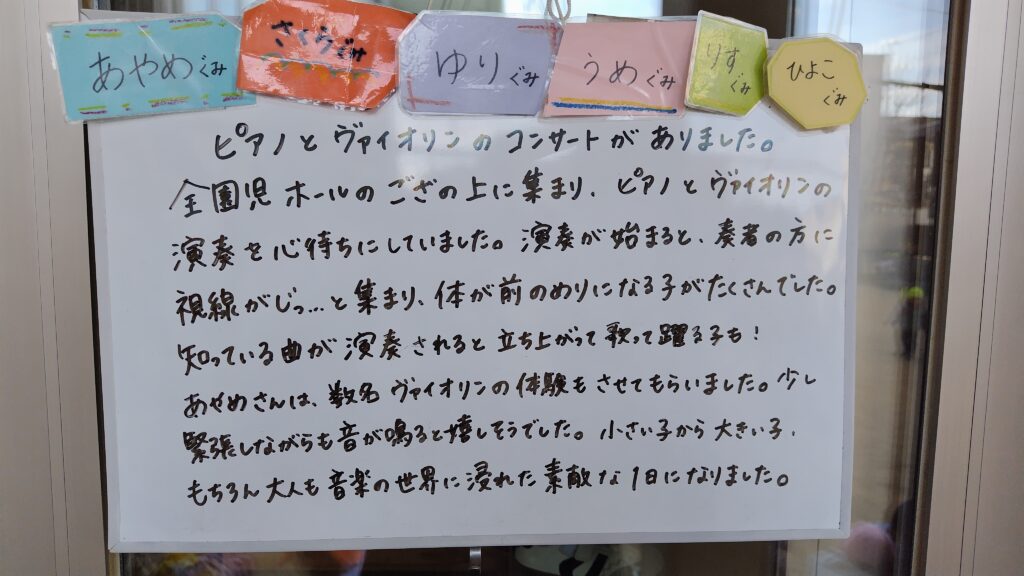 あやめぐみ
さくらぐみ
ゆりぐみ
うめぐみ
りすぐみ
ひよこぐみ
ピアノとヴァイオリンのコンサートがありました。
全園児ホールのござの上に集まり、ピアノとヴァイオリンの
演奏を心待ちにしていました。演奏が始まると、奏者の方に
視線がじっ…と集まり、体が前のめりになる子がたくさんでした。
知っている曲が演奏されると立ち上がって歌って踊る子も!
あやめさんは、数名ヴァイオリンの体験もさせてもらいました。少し
緊張しながらも音が鳴ると嬉しそうでした。小さい子から大きい子、
もちろん大人も音楽の世界に浸れた素敵な1日になりました。